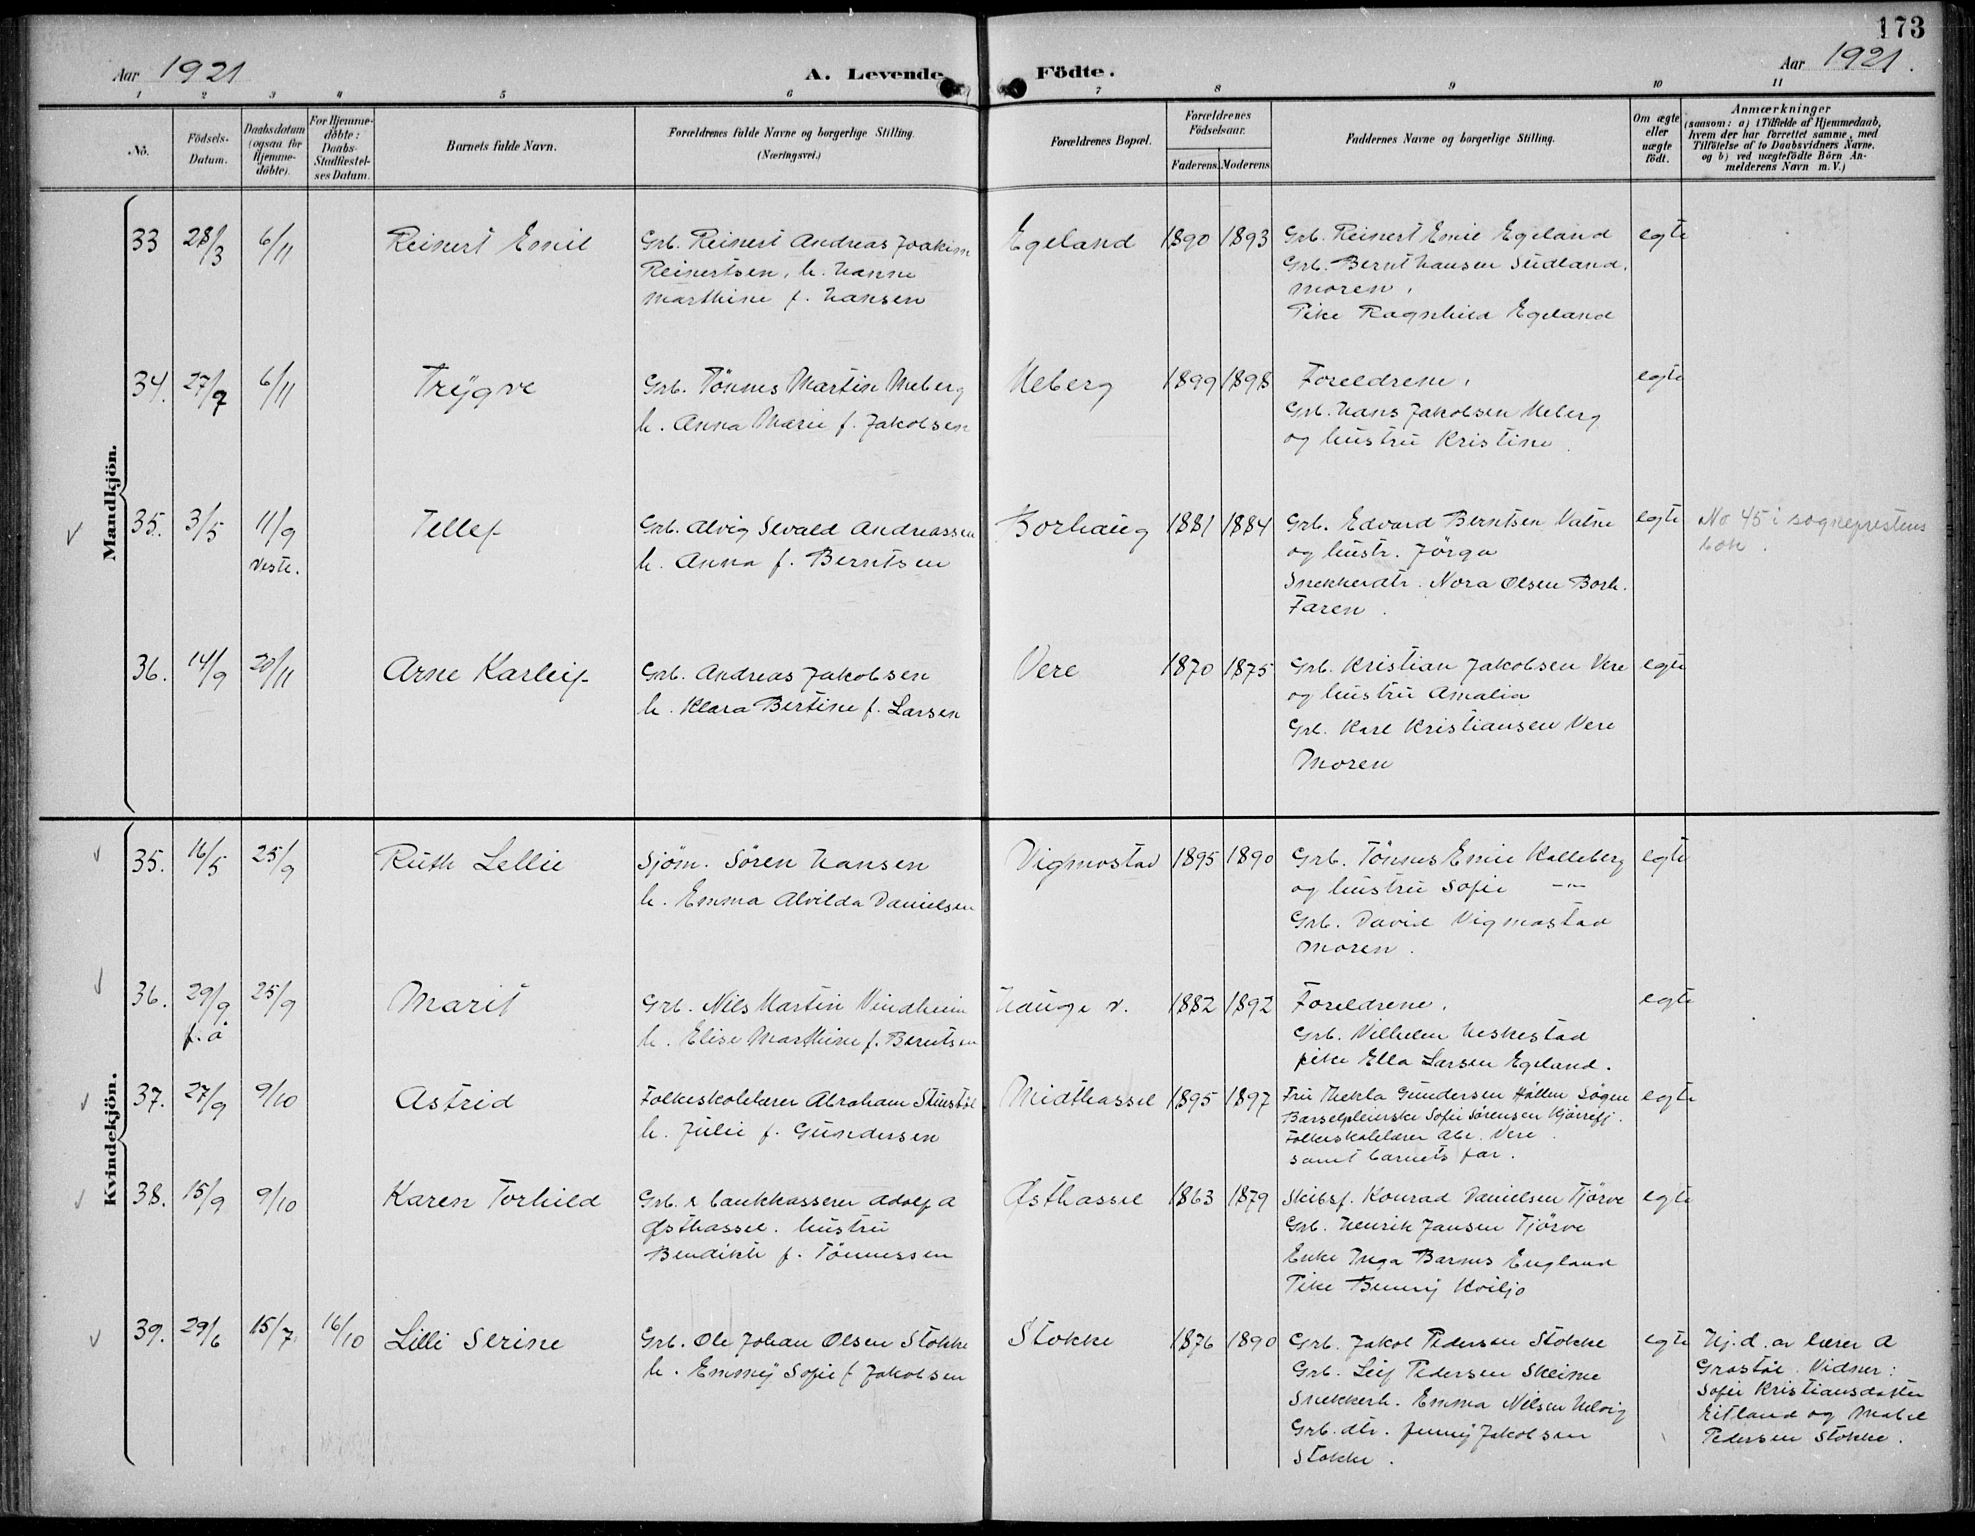 173
Aar 1921
A. Levende Födte.
Aar 1921.
1 2 3 4 5 6 7 8 9 10 11
No.
Födsels-
Datum.
Daabsdatum
(ogsaa for
Hjemme-
döbte).
For Hjemme-
döbte:
Daabs-
Stadfæstel-
ses Datum.
Barnets fulde Navn.
Forældrenes fulde Navne og borgerlige Stilling.
(Næringsvei.)
Forældrenes Bopæl.
Forældrenes
Födselsaar.
Faderens. Moderens.
Faddernes Navne og borgerlige Stilling.
Om ægte
eller
uægte
födt.
Anmærkninger
(saasom: a) i Tilfælde af Hjemmedaab,
hvem der har forrettet samme, med
Tilföielse af to Daabsvidners Navne,
og b) ved uægtefödte Börn An-
melderens Navn m. V.)
Mandkjön.
33 28/3 6/11 Reinert Emil
Grb. Reinert Andreas Joakim
Reinertsen, h. Hanne
Marthine f. Hansen
Egeland 1890 1893
Grb. Reinert Emil Egeland
Grb. Bernt Hansen Sudland.
Moren,
Pike Ragnhild Egeland
egte
34. 27/7 6/11 Trygve
Grb. Tönnes Martin Meberg
h. Anna Marie f. Jakobsen
Meberg 1899 1898
Foreldrene,
Grb. Hans Jakobsen Meberg
og hustru Kristine.
egte
35. 3/5 11/9
Veste.
Tellef
Grb. Alvig Sevald Andreassen
h. Anna f. Berntsen
Borhaug 1881 1884
Grb. Edvard Berntsen Vatne
og hustr. Jörga
Snekkerdtr. Nora Olsen Borh.
Faren.
egte
No 45 i sogneprestens
bok.
36. 14/9 20/11 Arne Karleif
Grb. Andreas Jakobsen
h. Klara Bertine f. Larsen
Vere 1870 1875
Grb. Kristian Jakobsen Vere
og hustru Amalia
Grb. Karl Kristiansen Vere
Moren
egte
Kvindekjön.
35. 16/5 25/9 Ruth Lellie
Sjöm. Sören Hansen
h. Emma Alvilda Danielsen
Vigmostad 1895 1890
Grb. Tönnes Emil Kalleberg
og hustru Sofie —"—
Grb. David Vigmostad
Moren.
egte
36. 29/9 25/9
f. å
Marit
Grb. Nils Martin Vindheim
h. Elise Marthine f. Berntsen
Hauge v. 1882 1892
Foreldrene.
Grb. Vilhelm Heskestad
pike Ella Larsen Egeland.
egte
37. 27/9 9/10 Astrid
Folkeskolelærer Abraham
h. Julie f. Gundersen
Midthassel 1895 1897
Fru Thekla Gundersen Höllen Sögne
Barselpleierske Sofie Sörensen
Folkeskolelærer Abr. Vere.
samt barnets far.
egte
38. 15/9 9/10 Karen Torhild
Grb. & bankkasserer Adolf A
Østhassel. hustru
Bendikte f. Tönnessen
Østhassel 1863 1879
Skibsf. Konrad Danielsen Tjörve
Grb. Henrik Jansen Tjörve
Enke Inga Barnes England
Pike Bunny Kviljo
egte
39. 29/6 15/7 16/10 Lilli Serine
Grb. Ole Johan Olsen Stokke
h. Emmy Sofie f Jakobsen
Stokke 1876 1890
Grb. Jakob Pedersen Stokke
Grb. Leif Pedersen Skeime
Snekkerh. Emma Nilsen Helvig
Grb. dtr. Jenny Jakobsen
Stokke.
egte
Hj.d. av lærer A
Grostøl. Vidner:
Sofie Kristiansdatter
Eitland og Mabel
Pedersen Stokke.